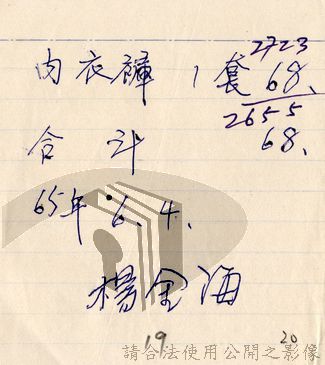 2723
內衣褲 1套 68.
2655
合計 68.
65年.6.4.
楊金海
19 20
請合法使用公開之影像